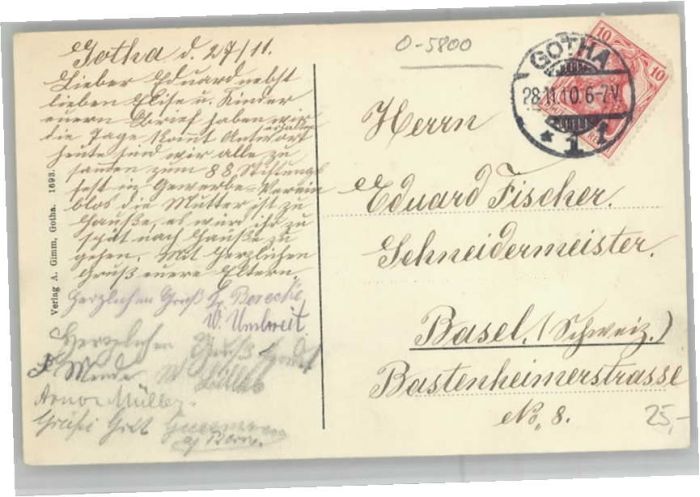 Gotha d. 27/11.
Lieber Eduard nebst
lieben Elise u. Kinder
euern Brief haben wir
die Tage kommt Antwort
erhalten
heute sind wir alle zu
samen zum 88 Stiftungs
fest in Gewerbe-Verein
blos die Mutter ist zu
Hauße, es wür ihr zu
spät nach Hauße zu
gehen. Mit herzlichen
Gruß euere Eltern.
Herzlichen Gruß
W. Umbreit.
Herzlichen Gruß
Arno Müller
Verlag A. Gimm, Gotha. 1693.
O-5800
GOTHA
28.11.10.6-7V.
* 1 f
10
10
Herrn
Eduard Fischer.
Schneidermeister.
Basel. (Schweiz.)
Bastenheimerstrasse
No. 8.
25,-